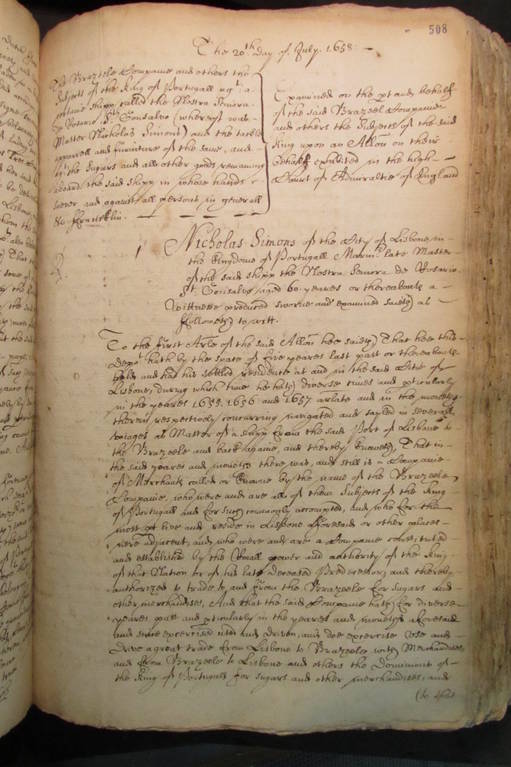 508
The 20th day of July. 1658.
The Brazeele Companie and others the
Subjects of the King of Portugall agt a
certaine shipp called the Nostra Senora
de Rosario Sto Gonsalvo (whereof was
Master Nicholas Simons) and the tackle
apparell and furniture of the same, and
the Sugars and all other goods remaining
aboard the said shipp in whose hands
soever and against all persons in generall
&c ffrancklin.
Examined on the pt and behalfe
of the said Brazeel Companie
and others the Subjects of the said
King upon an Allon on their
behalfe exhibited in the high
Court of Admiraltie of England
1
Nicholas Simons of the City of Lisbone in
the kingdome of Portugall Marinr late Master
of the said shipp the Nostra Senora de Rosario
St Gonsalvo aged 60 yeares or thereabouts a
Wittnesse produced sworne and examined saieth as
followeth to witt.
To the first Arle of the said Allon hee saieth That hee this
Depot hath by the space of five yeares last past or thereabouts
and had his setled residence at and in the said City of
Lisbone, during which time he hath diverse times and pticularly
in the yeares 1655. 1656 and 1657 arlate and in the moneths
therein respectively concurring navigated and sayled in severall
voiages as Master of a shipp from the said Port of Lisbone to
the Brazeele and back againe, and thereby knoweth That in
the said yeares and moneths there was, and still is a Companie
of Merchants called or knowne by the name of the Brazeele
Companie, who were and are all of them Subjects of the King
of Portugall and for such commonly accompted, and who for the
most pt live and reside in Lisbone aforesaid or other places
neere adjacent, and who were and are a Companie constituted
and established by the power and authority of the King
of that Nation or of his late deceased Predecessor, and thereby
authorized to trade to and from the Brazeele for Sugars and
other merchandizes, And that the said Companie hath for diverse
yeares past and pticularly in the yeares and moneths aforesaid
and since exercised used and driven, and doe exercise use and
drive a great trade from Lisbone to Brazeele with Merchandizes
and from Brazeele to Lisbone and others the Dominions of
the King of Portugall for sugars and other merchandizes, and